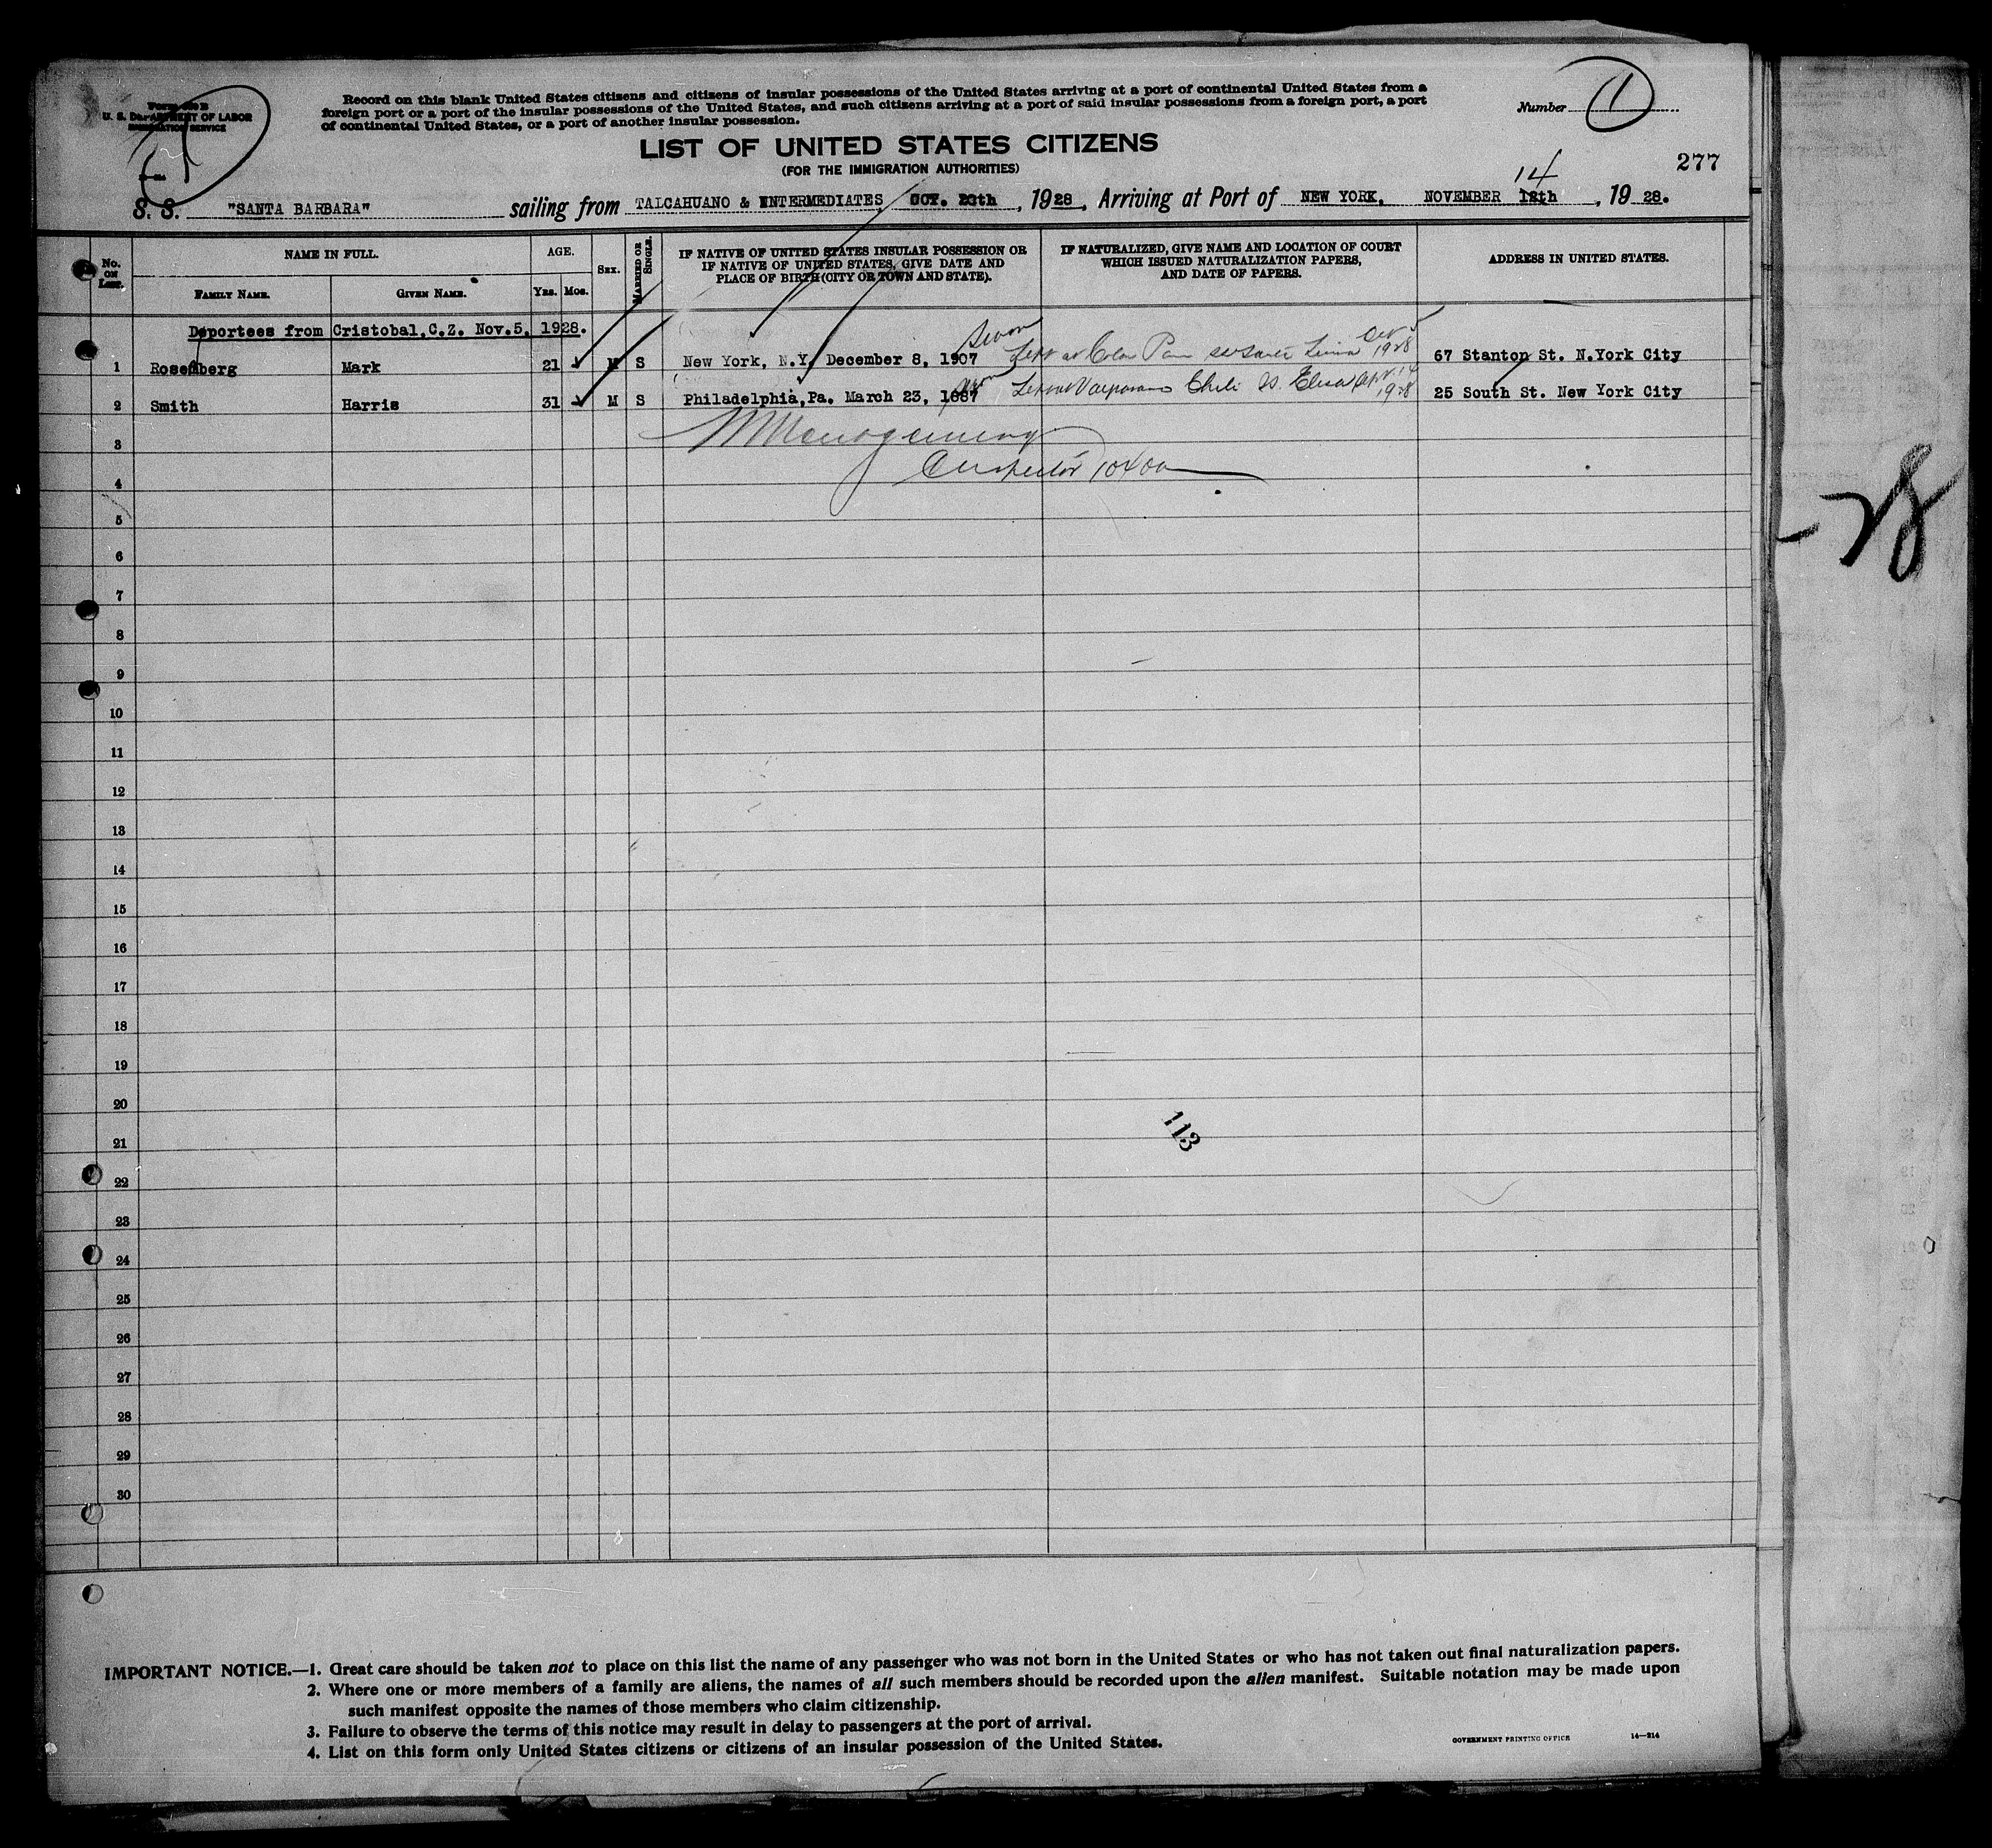 Form 630 B
U. S. DEPARTMENT OF LABOR
IMMIGRATION SERVICE
Record on this blank United States citizens and citizens of insular possessions of the United States arriving at a port of continental United States from a
foreign port or a port of the insular possessions of the United States, and such citizens arriving at a port of said insular possessions from a foreign port, a port
of continental United States, or a port of another insular possession.
Number 1
LIST OF UNITED STATES CITIZENS
(FOR THE IMMIGRATION AUTHORITIES)
277
14
S. S. "SANTA BARBARA" sailing from TALCAHUANO & INTERMEDIATES, OCT. 20th, 1928, Arriving at Port of NEW YORK, NOVEMBER 12th, 1928.
No. ON LIST.
NAME IN FULL.
FAMILY NAME.
GIVEN NAME.
AGE.
YRS.
MOS.
SEX.
MARRIED OR SINGLE.
IF NATIVE OF UNITED STATES INSULAR POSSESSION OR
IF NATIVE OF UNITED STATES, GIVE DATE AND
PLACE OF BIRTH (CITY OR TOWN AND STATE).
IF NATURALIZED, GIVE NAME AND LOCATION OF COURT
WHICH ISSUED NATURALIZATION PAPERS,
AND DATE OF PAPERS.
ADDRESS IN UNITED STATES.
Deportees from Cristobal, C.Z. Nov.5, 1928.
1 Rosenberg Mark 21 M S New York, N.Y. December 8, 1907 Left at Colon Pan 1928 67 Stanton St. N.York City
2 Smith Harris 31 M S Philadelphia, Pa. March 23, 1887 Left at Valparaiso Chili 1928 25 South St. New York City
3
Inspector
4
5
6
7
8
9
10
11
12
13
14
15
16
17
18
19
20
113
21
22
23
24
25
26
27
28
29
30
-28
IMPORTANT NOTICE.—1. Great care should be taken not to place on this list the name of any passenger who was not born in the United States or who has not taken out final naturalization papers.
2. Where one or more members of a family are aliens, the names of all such members should be recorded upon the alien manifest. Suitable notation may be made upon
such manifest opposite the names of those members who claim citizenship.
3. Failure to observe the terms of this notice may result in delay to passengers at the port of arrival.
4. List on this form only United States citizens or citizens of an insular possession of the United States.
GOVERNMENT PRINTING OFFICE
14—214